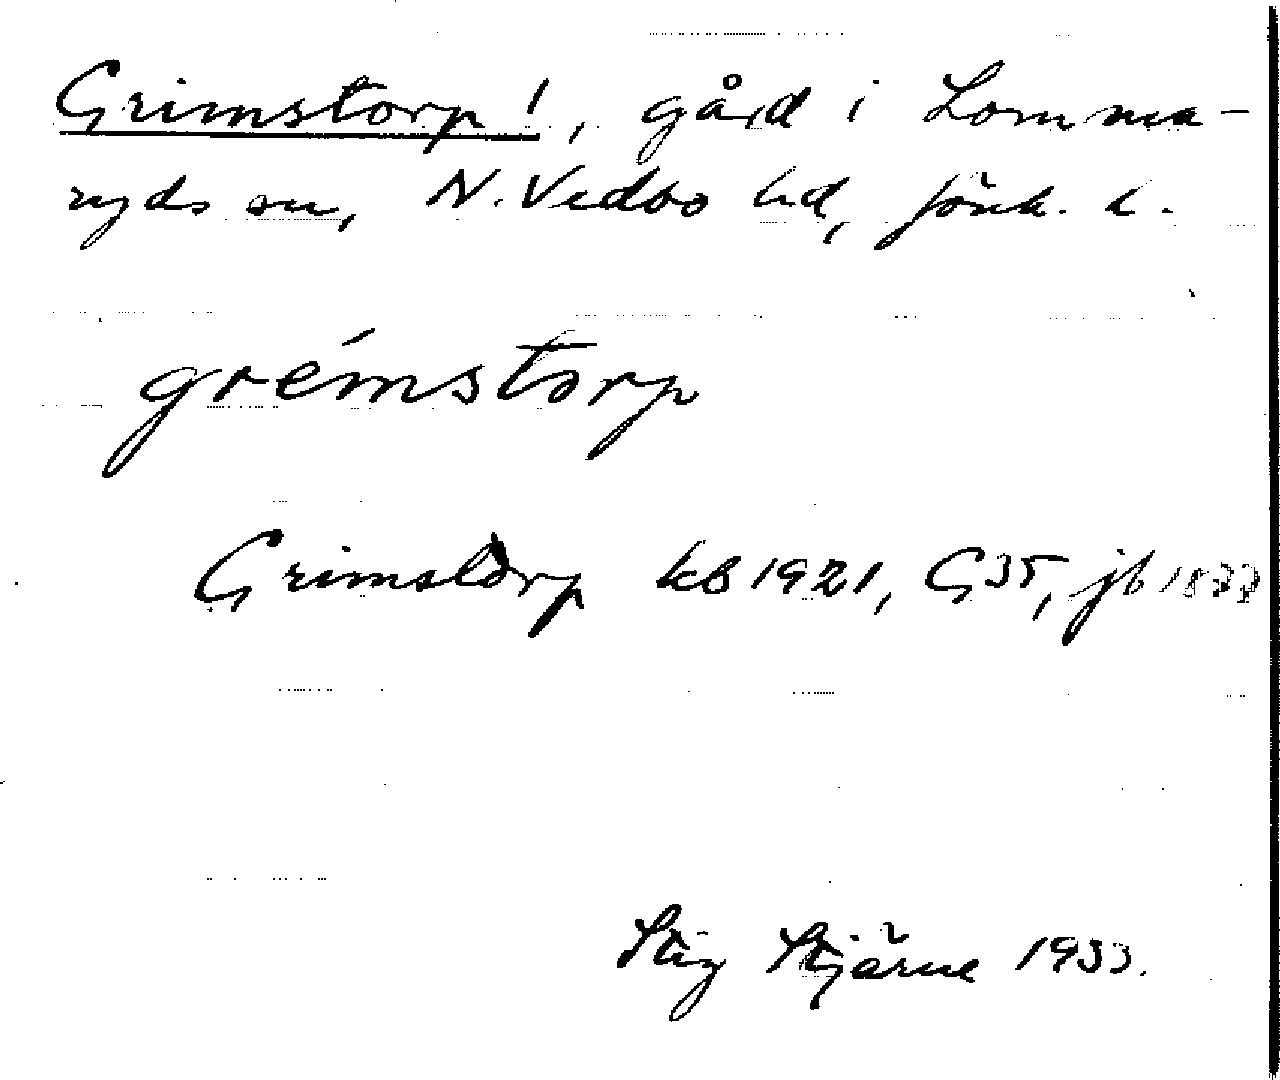 Grimstorp!, gård i Lomma-
ryds sn, N. Vedbo hd, Jönk. l.
grémstorp
Grimstorp kb 1921, G35, jb 1877
Stig Stjärne 1933.